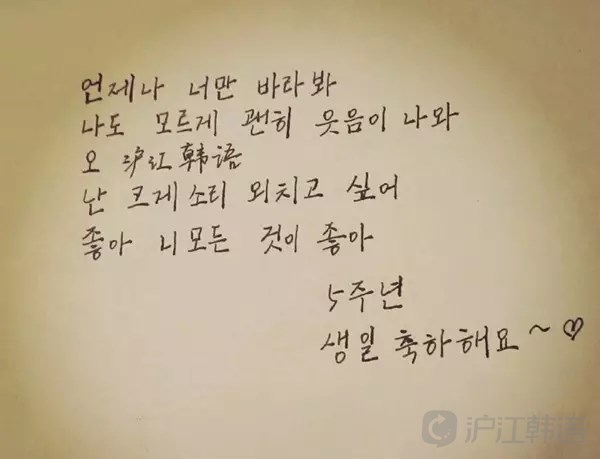 언제나 너만 바라봐
나도 모르게 괜히 웃음이 나와
오 沪江韩语
난 크게소리 외치고 싶어
좋아 니모든 것이 좋아
5주년
생일 축하해요~♡
沪江韩语